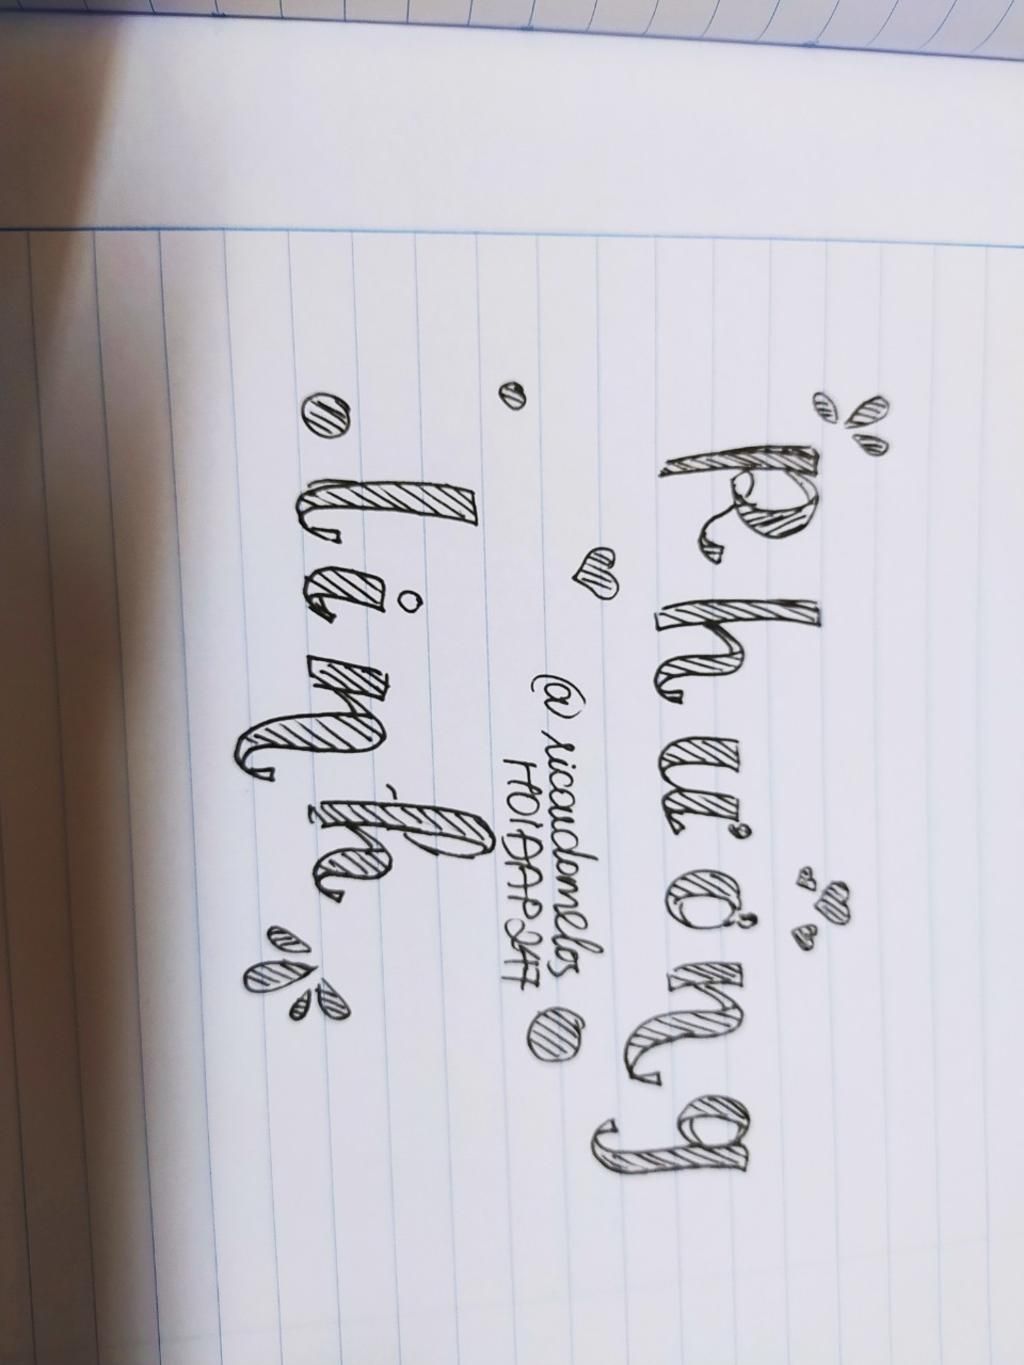 Phương
@ricardomelos
HOIĐAP247
linh